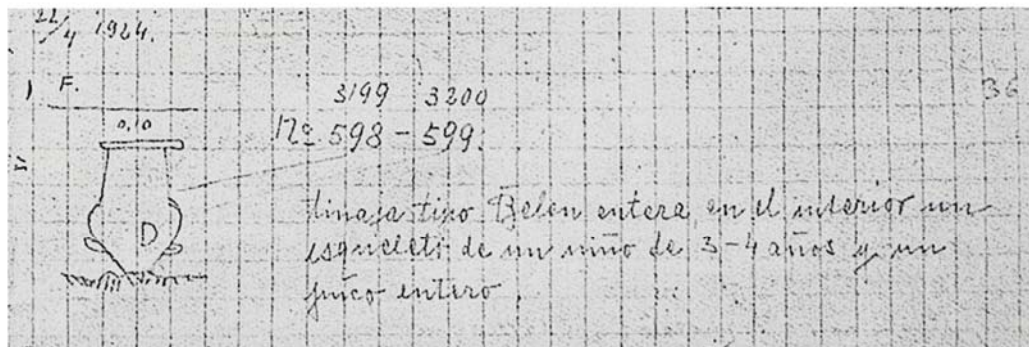 22/4 1924.
) F.
3199 3200
36
0,10
Nº 598 - 599.
D
tinaja tipo Belen entera, en el interior un
esqueleti de un niño de 3-4 años y un
puco entero.